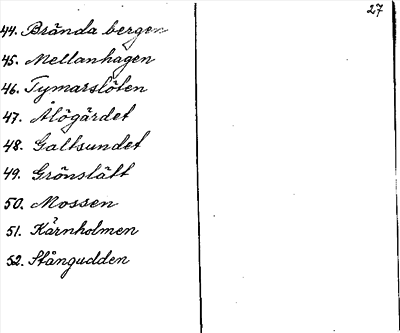 27
44. Brända bergen
45. Mellanhagen
46. Tymarslöten
47. Ålögärdet
48. Galtsundet
49. Grönslätt
50. Mossen
51. Kärnholmen
52. Stångudden